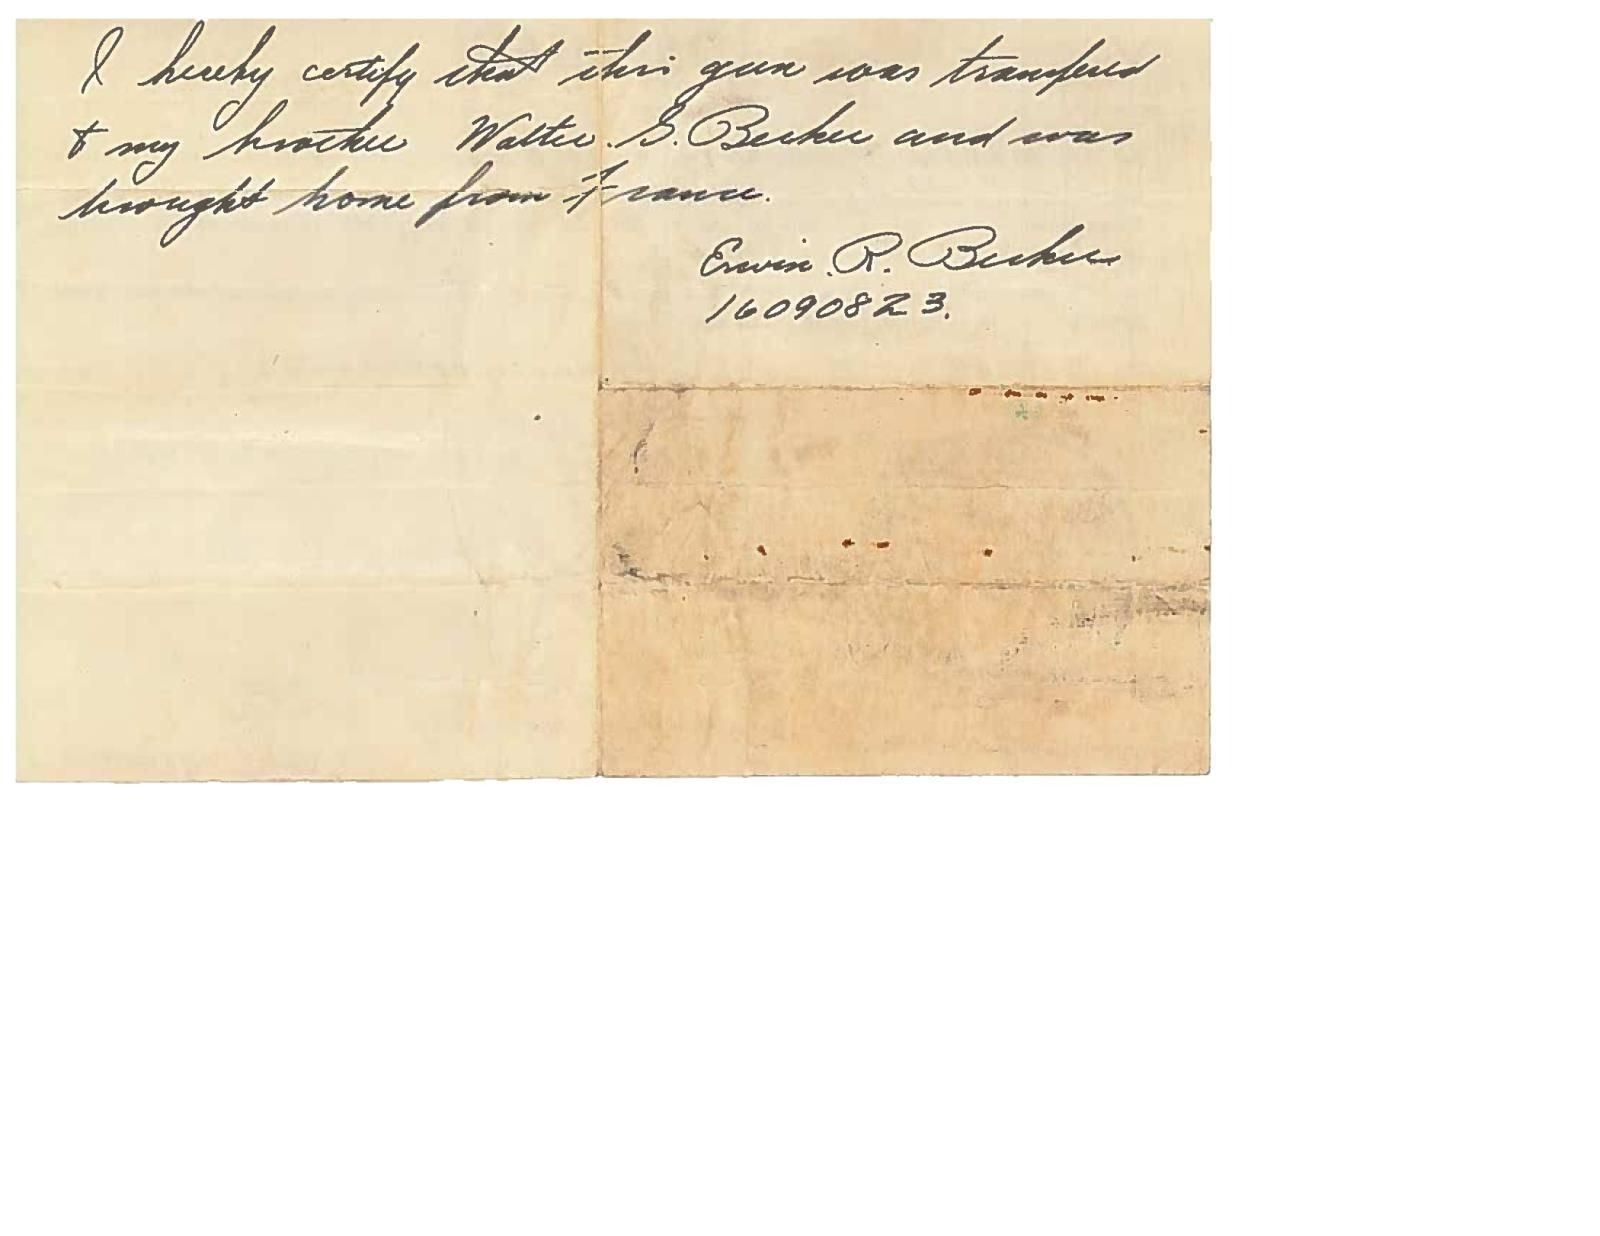 I hereby certify that this gun was transfered
to my brother Walter. G. Becker and was
brought home from France.
Erwin. R. Becker
16090823.